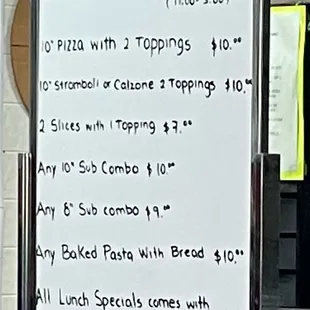 (11:00-3:00)
10" Pizza with 2 Toppings $10.00
10" Stromboli or Calzone 2 Toppings $10.00
2 Slices with 1 Topping $7.00
Any 10" Sub Combo $10.00
Any 8" Sub combo $9.00
Any Baked Pasta With Bread $10.00
All Lunch Specials comes with